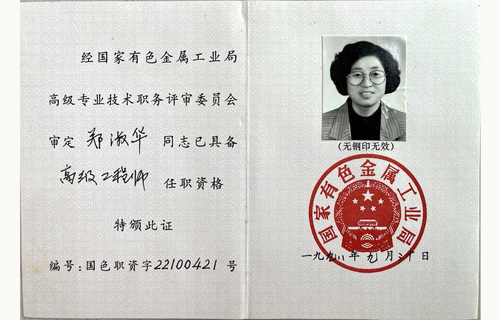 经国家有色金属工业局
高级专业技术职务评审委员会
审定 郑淑华 同志已具备
高级工程师 任职资格
特颁此证
编号：国色职资字22100421号
(无钢印无效)
国家有色金属工业局
一九九八年九月三十日